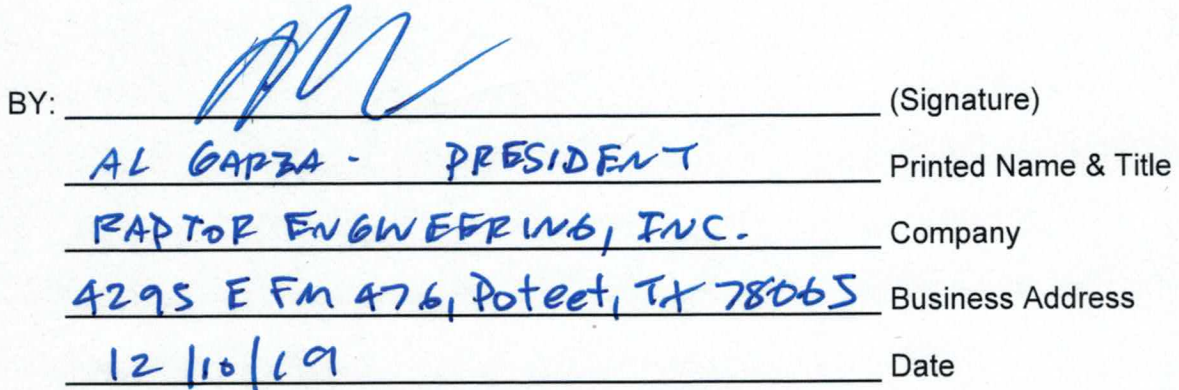 BY: (Signature)
AL GARZA - PRESIDENT Printed Name & Title
RAPTOR ENGINEERING, INC. Company
4295 E FM 476, Poteet, TX 78065 Business Address
12/10/19 Date